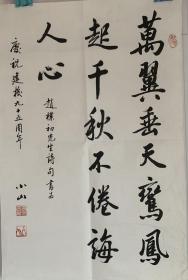 萬翼垂天鸞鳳
起千秋不倦誨
人心
趙樸初先生詩句 書爲
慶祝建黨九十五周年
小山